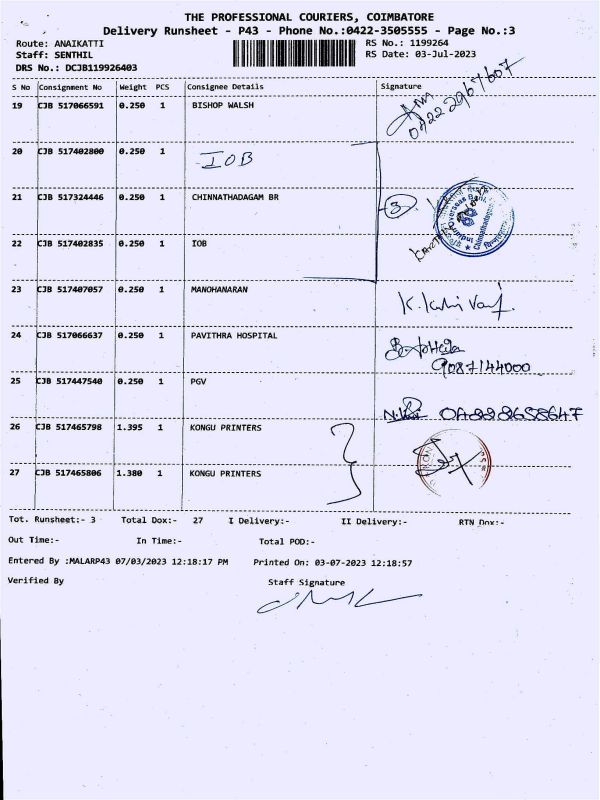 THE PROFESSIONAL COURIERS, COIMBATORE
Delivery Runsheet - P43 - Phone No.:0422-3505555 - Page No.:3
Route: ANAIKATTI RS No.: 1199264
Staff: SENTHIL RS Date: 03-Jul-2023
DRS No.: DCJB119926403
S No Consignment No Weight PCS Consignee Details Signature
19 CJB 517066591 0.250 1 BISHOP WALSH
0422 2967607
20 CJB 517402800 0.250 1 IOB
21 CJB 517324446 0.250 1 CHINNATHADAGAM BR 3
22 CJB 517402835 0.250 1 IOB
23 CJB 517407057 0.250 1 MANOHANARAN
24 CJB 517066637 0.250 1 PAVITHRA HOSPITAL
9087144000
25 CJB 517447540 0.250 1 PGV
26 CJB 517465798 1.395 1 KONGU PRINTERS
27 CJB 517465806 1.380 1 KONGU PRINTERS
Tot. Runsheet:- 3 Total Dox:- 27 I Delivery:- II Delivery:- RTN Dox:-
Out Time:- In Time:- Total POD:-
Entered By :MALARP43 07/03/2023 12:18:17 PM Printed On: 03-07-2023 12:18:57
Verified By Staff Signature